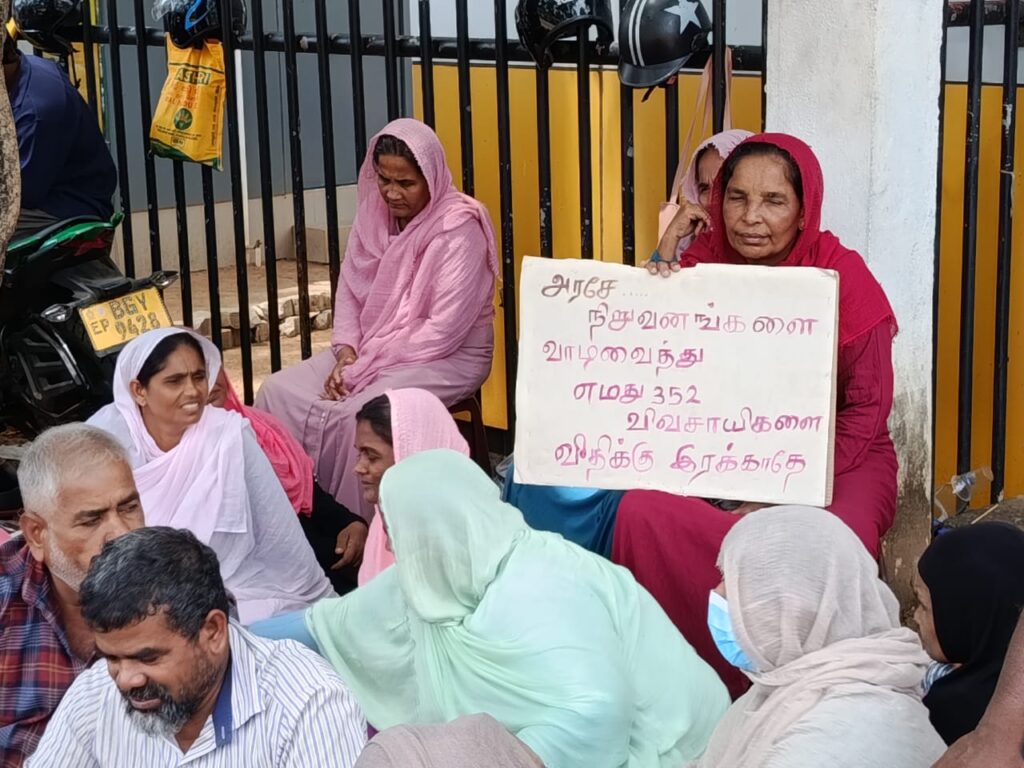 அரசே.....
நிறுவனங்களை
வாழவைத்து
எமது 352
விவசாயிகளை
வீதிக்கு இரக்காதே
BGY
EP 9428